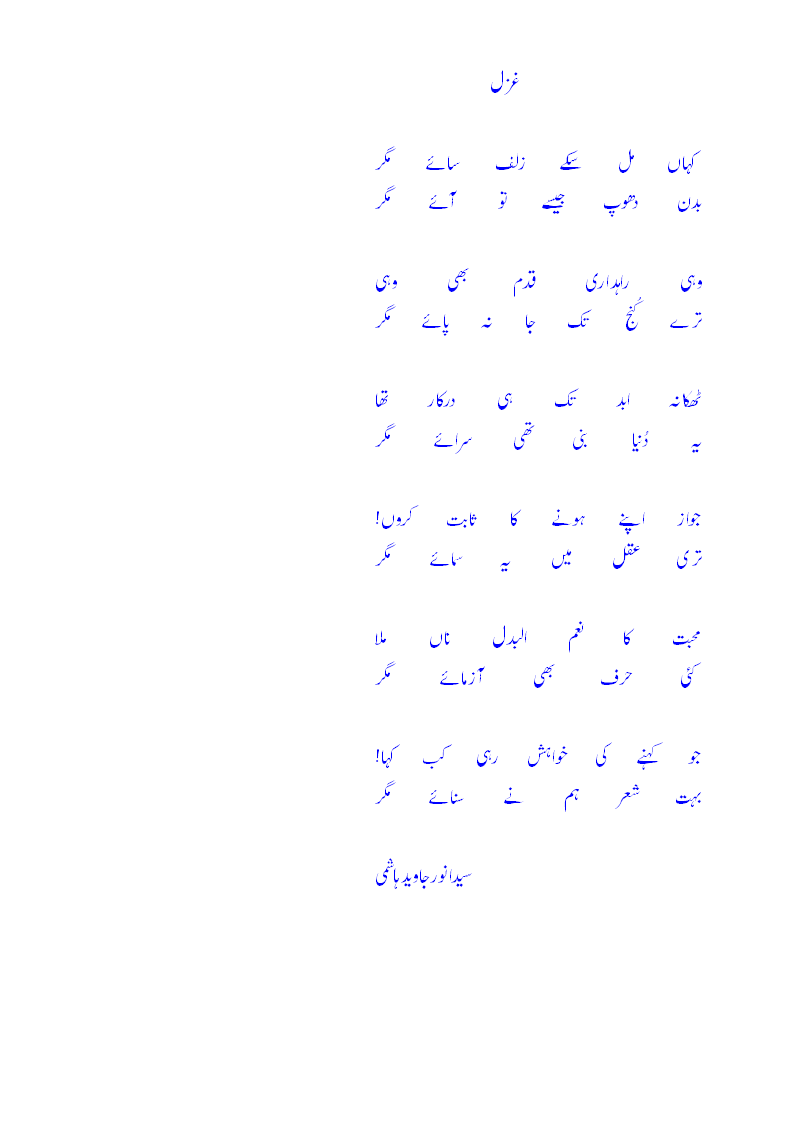 غزل
کہاں مل سکے زلف سائے مگر
بدن دھوپ جیسے تو آئے مگر
وہی راہداری قدم بھی وہی
ترے کُنج تک جا نہ پائے مگر
ٹھکانہ ابد تک ہی درکار تھا
یہ دُنیا بنی تھی سرائے مگر
جواز اپنے ہونے کا ثابت کروں!
تری عقل میں یہ سمائے مگر
محبت کا نعم البدل ناں ملا
کئی حرف بھی آزمائے مگر
جو کہنے کی خواہش رہی کب کہا!
بہت شعر ہم نے سنائے مگر
سیدانورجاویدہاشمی